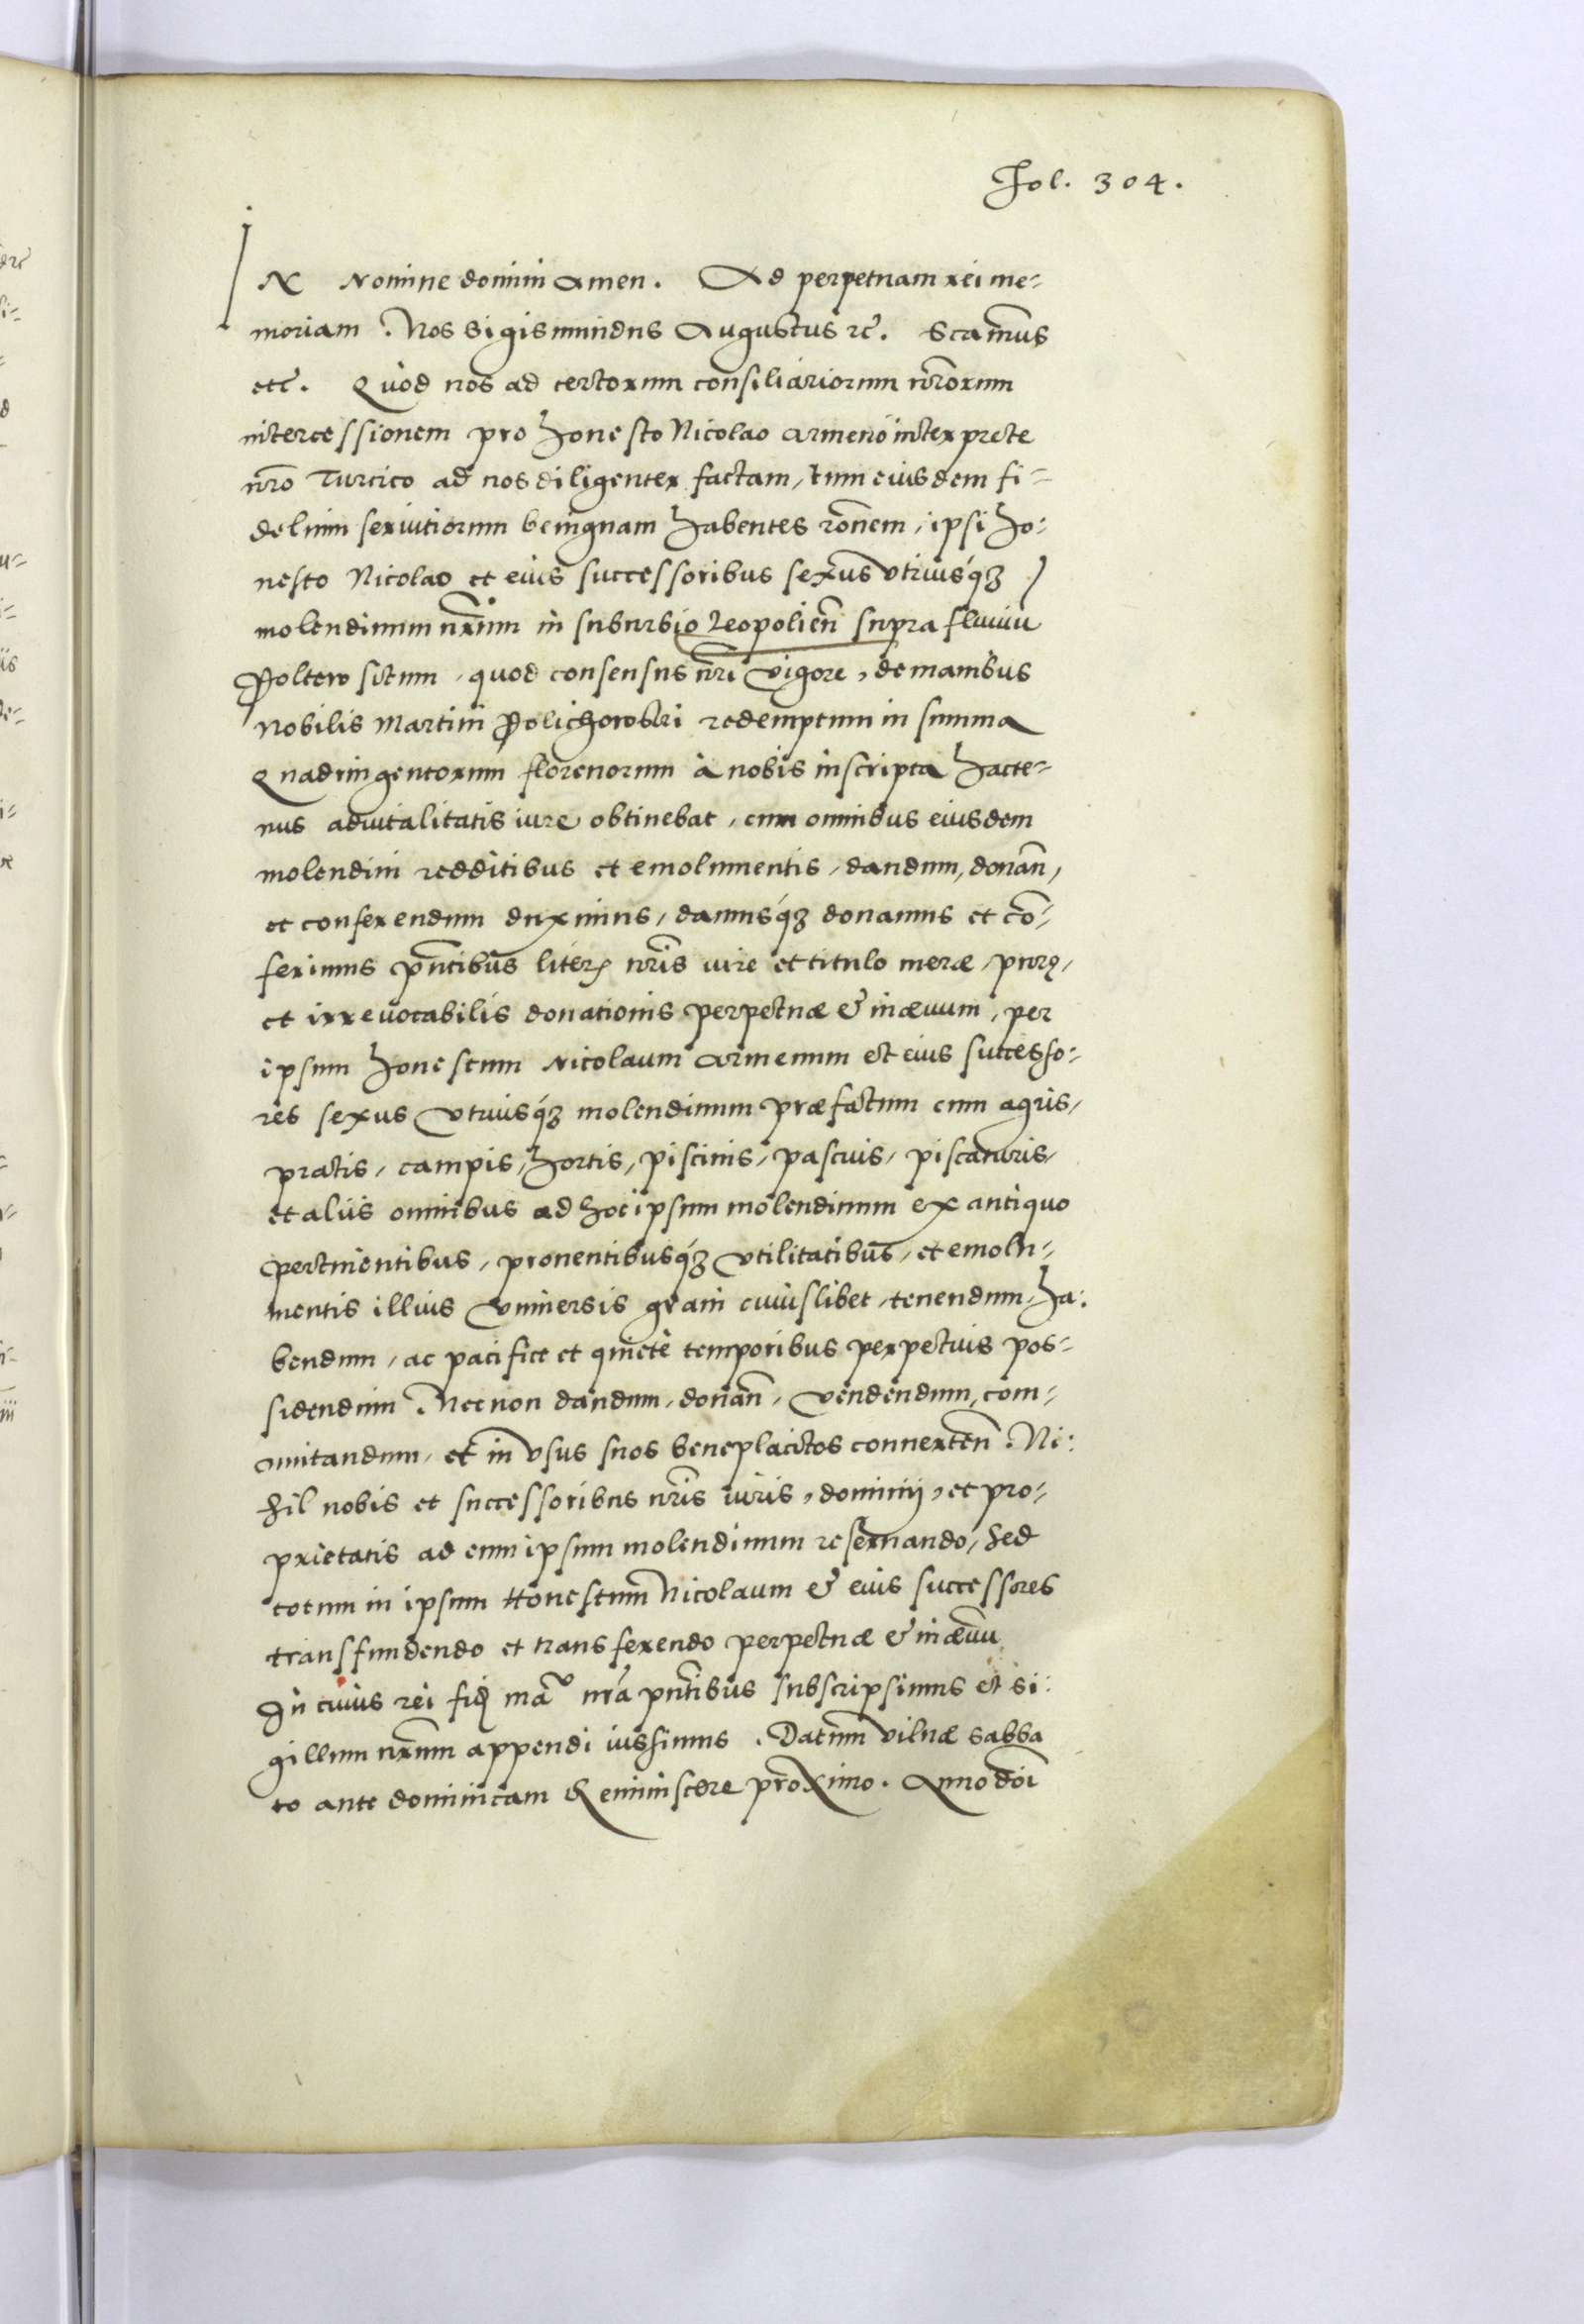 Fol. 304.
IN Nomine domini Amen. Ad perpetuam rei me-
moriam. Nos Sigismundus Augustus rc̃. Sca mus
etc̃. Quòd nos ad certorum consiliariorum nr̃orum
intercessionem pro honesto Nicolao Armeno interprete
nr̃o Turcico ad nos diligenter factam, tum eiusdem fi-
delium seruitiorum benignam habentes rõnem, ipsi ho-
nesto Nicolao et eius successoribus sexus vtriusq́ꝫ
molendinum nr̃um in suburbio Leopolieñ supra fluuiū
Poltew situm, quod consensus nr̃i vigore, de manibus
Nobilis Martini Polichowski redemptum in summa
Quadringentorum florenorum à nobis inscripta hacte-
nus aduitalitatis iure obtinebat, cum omnibus eiusdem
molendini redditibus et emolumentis, dandum, donañ,
et conferendum duximus, damusq́ꝫ donamus et cõ-
ferimus pñtibus literis nr̃is iure et titulo meræ, puræ,
et irreuocabilis donationis perpetuæ & in æuum, per
ipsum honestum Nicolaum Armenum et eius successo-
res sexus vtriusq́ꝫ molendinum præfatum cum agris,
pratis, campis, hortis, piscinis, pascuis, piscaturis,
et aliis omnibus ad hoc ipsum molendinum ex antiquo
pertinentibus, prouentibusq́ꝫ vtilitatibus, et emolu-
mentis illius vniuersis grani cuiuslibet, tenendum, ha-
bendum, ac pacifice et quietè temporibus perpetuis pos-
sidendum. Nec non dandum, donañ, vendendum, com-
mutandum, et in vsus suos beneplacitos conuerteñ. Ni-
hil nobis et successoribus nr̃is iuris, dominij, et pro-
prietatis ad eum ipsum molendinum reseruando, sed
totum in ipsum Honestum Nicolaum & eius successores
transfundendo et transferendo perpetuæ & in æuũ
In cuius rei fidẽ manᵒ nr̃a pñtibus subscripsimus et si-
gillum nr̃um appendi iussimus. Datum Vilnæ Sabba
to ante dominicam Reminiscere proximo. Anno doĩ